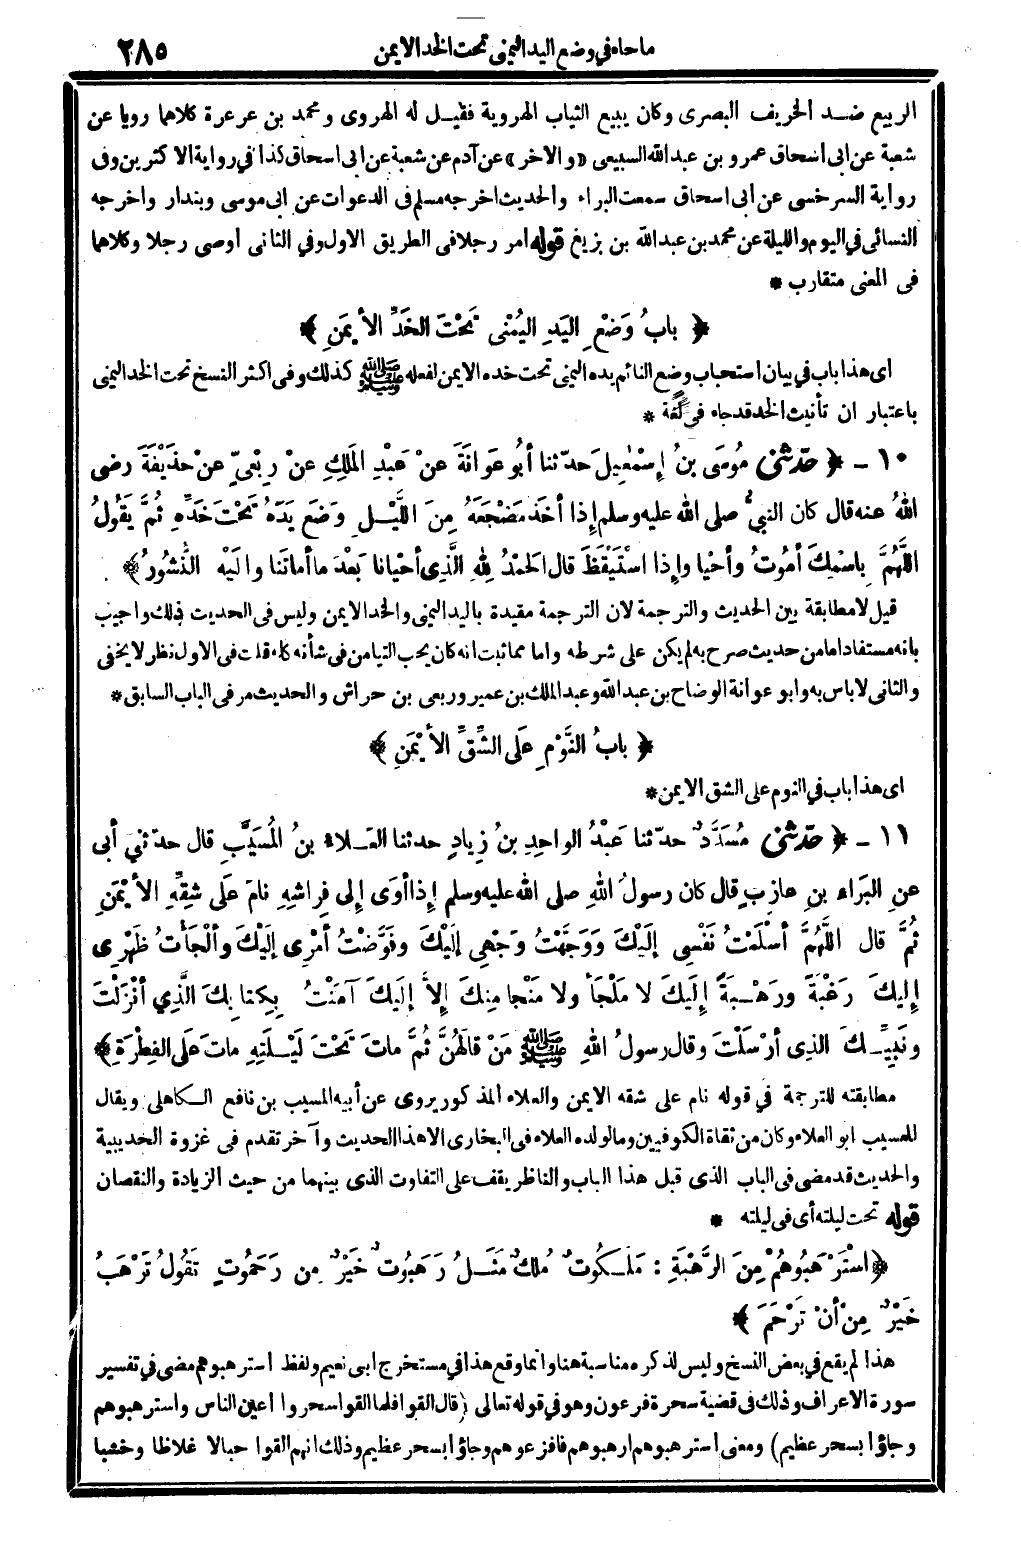 ماجاء في وضع اليد اليمنى تحت الخد الايمن ٢٨٥
الربيع ضد الخريف البصرى وكان يبيع الثياب الهروية فقيل له الهروى ومحمد بن عرعرة كلاهما رويا عن
شعبة عن ابى اسحاق عمرو بن عبد الله السبيعى «والاخر» عن آدم عن شعبة عن ابى اسحاق كذا في رواية الاكثرين وفى
رواية السرخسى عن أبى اسحاق سمعت البراء والحديث اخرجه مسلم فى الدعوات عن ابى موسى وبندار واخرجه
النسائى في اليوم والليلة عن محمد بن عبد الله بن بزيغ قوله امر رجلا فى الطريق الاول وفي الثانى اوصى رجلا وكلاهما
فى المعنى متقارب *
﴿ بابُ وَضْعِ اليَدِ اليُمْنَى تَحْتَ الخَدِّ الأَيمَنِ ﴾
اى هذا باب في بيان استحباب وضع النائم يده اليمنى تحت خده الايمن لفعله ﷺ كذلك وفى اكثر النسخ تحت الخد اليمنى
باعتبار ان تأنيث الخد قد جاء فى لغة *
١٠ - ﴿ حدّثنى مُوسَى بنُ إِسْمٰعِيلَ حدّثنا أبُو عَوَانَةَ عَنْ عَبْدِ المَلِكِ عنْ رِبْعِيٍّ عنْ حُذَيْفَةَ رضى
اللهُ عنه قال كان النبيُّ صلى الله عليه وسلم إِذا أخَذَ مَضْجَعَهُ مِنَ اللَّيْـلِ وضَعَ يَدَهُ تَحْتَ خَدِّهِ ثُمَّ يَقُولُ
اللَّهُمَّ بِاسْمِكَ أمُوتُ وأحْيا وإذا اسْتَيْقَظَ قال الحَمْدُ لِلهِ الَّذِى أحْيانا بَعْدَ ما أماتَنَا وإليْهِ النُّشُورُ ﴾
قيل لا مطابقة بين الحديث والترجمة لان الترجمة مقيدة باليد اليمنى والخد الايمن وليس فى الحديث ذلك واجيب
بانه مستفاد اما من حديث صرح به لم يكن على شرطه واما مما ثبت انه كان يحب التيامن في شأنه كله قلت فى الاول نظر لا يخفى
والثانى لا باس به وابو عوانة الوضاح بن عبد الله وعبد الملك بن عمير وربعى بن حراش والحديث مر فى الباب السابق *
﴿ بابُ النَّوْمِ عَلَى الشِّقِّ الأَيْمَنِ ﴾
اى هذا باب في النوم على الشق الايمن *
١١ - ﴿ حدّثنى مُسَدَّدٌ حدّثنا عَبْدُ الواحِدِ بنُ زِيادٍ حدثنا العَـلاءُ بنُ المُسَيَّبِ قال حدّثني أبى
عنِ البَرَاءِ بنِ عازِبٍ قال كان رسولُ اللهِ صلى الله عليه وسلم إِذا أوَى إلى فِراشِهِ نامَ عَلَى شِقِّهِ الأَيْمَنِ
ثُمَّ قال اللَّهُمَّ أسْلَمْتُ نَفْسِى إلَيْكَ وَوَجَّهْتُ وَجْهِى إلَيْكَ وفَوَّضْتُ أمْرِى إلَيْكَ وألْجَأْتُ ظَهْرِى
إلَيْكَ رَغْبَةً ورَهْـبَةً إلَيْكَ لا مَلْجَأَ ولا مَنْجا مِنْكَ إلاَّ إلَيْكَ آمَنْتُ بِكِتابِكَ الَّذِي أنْزَلْتَ
ونَبِيِّـكَ الذِى أرْسَلْتَ وقال رسولُ اللهِ ﷺ مَنْ قالَهُنَّ ثُمَّ ماتَ تَحْتَ لَيْـلَتِهِ ماتَ عَلَى الفِطْرَةِ ﴾
مطابقته للترجمة في قوله نام على شقه الايمن والعلاء المذكور يروى عن أبيه المسيب بن نافع الكاهلى ويقال
للمسيب ابو العلاء وكان من ثقاة الكوفيين وما لولده العلاء فى البخارى الا هذا الحديث وآخر تقدم فى غزوة الحديبية
والحديث قد مضى فى الباب الذى قبل هذا الباب والناظر يقف على التفاوت الذى بينهما من حيث الزيادة والنقصان
قوله تحت ليلته أى فى ليلته *
﴿ اسْتَرْهَبُوهُمْ مِنَ الرَّهْبَةِ : مَلَـكُوتٌ مُلْكٌ مَثَـلُ رَهَبُوتٌ خَيْرٌ مِن رَحَمُوتٍ تَقُولُ تَرْهَبُ
خَيْرٌ مِنْ أنْ تَرْحَمَ ﴾
هذا لم يقع في بعض النسخ وليس لذكره مناسبة هنا وانما وقع هذا في مستخرج ابى نعيم ولفظ استرهبوهم مضى في تفسير
سورة الاعراف وذلك فى قضية سحرة فرعون وهو في قوله تعالى (قال القوا فلما القوا سحروا اعين الناس واسترهبوهم
وجاؤا بسحر عظيم) ومعنى استرهبوهم ارهبوهم فافزعوهم وجاؤا بسحر عظيم وذلك انهم القوا حبالا غلاظا وخشبا